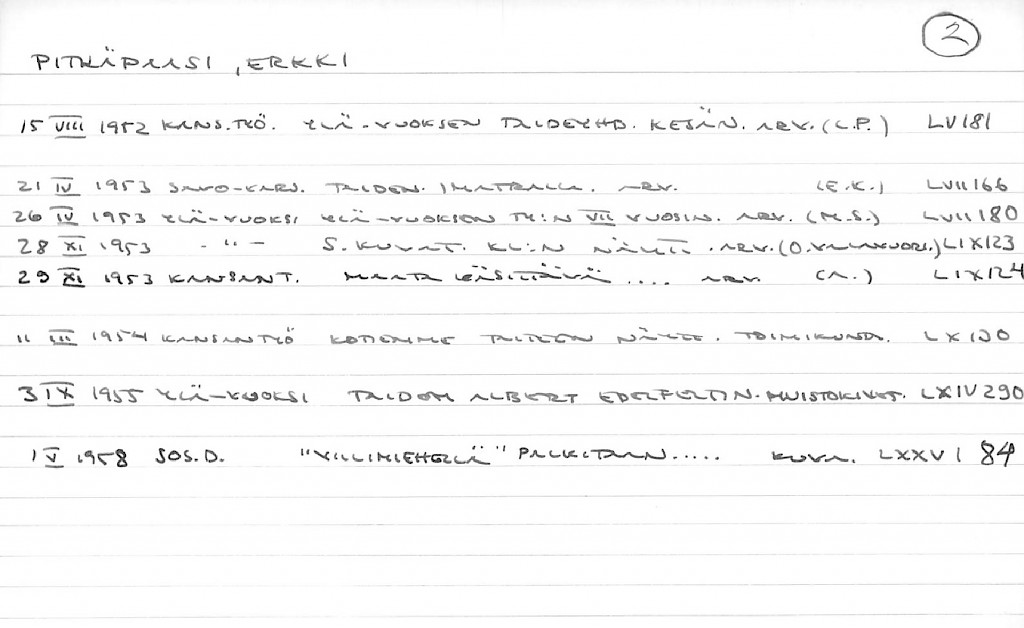 2
PITKÄPAASI, ERKKI
15 VIII 1952 KANS.TYÖ. YLÄ-VUOKSEN TAIDEYHD. KESÄN. ARV. (L.P.) LV 181
21 IV 1953 SAVO-KARJ. TAIDEN. IMATRALLA. ARV. (E.K.) LVII 166
26 IV 1953 YLÄ-VUOKSI YLÄ-VUOKSEN TY:N VII VUOSIN. ARV. (M.S.) LVII 180
28 XI 1953 - " - S. KUVAT. KL:N NÄYTT. ARV. (O. VALAVUORI.) LIX 123
29 XI 1953 KANSANT. MAATA KÄSITTÄVÄ .... ARV. (A.) LIX 124
11 III 1954 KANSANTYÖ KOTIEMME TAITEEN NÄYTT. TOIMIKUNTA. LX 130
3 IX 1955 YLÄ-VUOKSI TAIDEM ALBERT EDELFELTIN. MUISTOKIVET. LXIV 290
1 V 1958 SOS.D. "VILLIMIEHELLÄ" PALKITAAN ..... KUVA. LXXVI 84